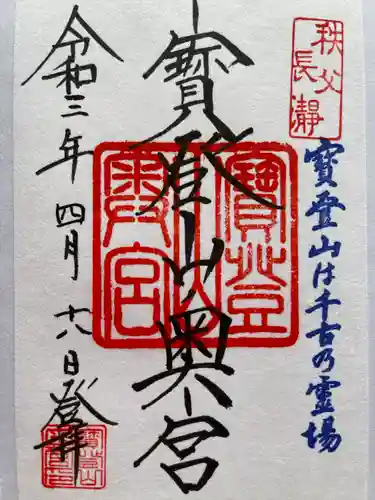 秩父
長瀞
寳登山は千古乃霊場
寳登山奥宮
寳登山
奥宮
令和三年四月十八日登拝